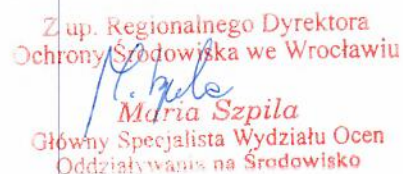 Z up. Regionalnego Dyrektora
Ochrony Środowiska we Wrocławiu
M. Szpila
Maria Szpila
Główny Specjalista Wydziału Ocen
Oddziaływania na Środowisko